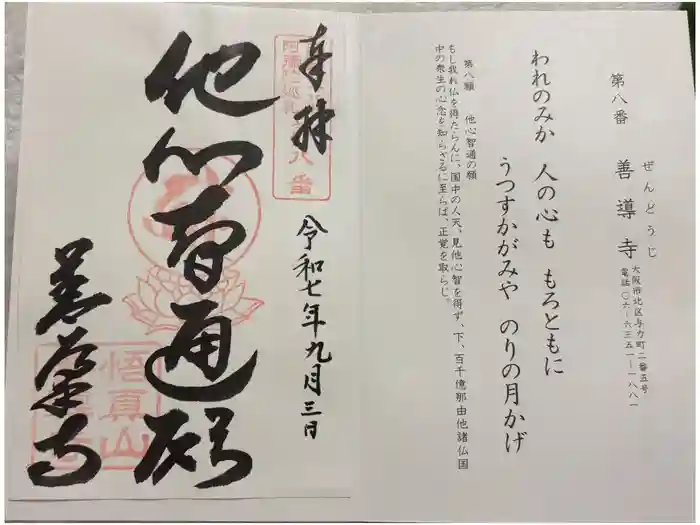 第八番
ぜんどうじ
善導寺
大阪市北区与力町二番五号
電話〇六ー六三五一ー一八八一
われのみか 人の心も もろともに
うつすかがみや のりの月かげ
第八願 他心智通の願
もし我れ仏を得たらんに、国中の人天、見他心智を得ず、下、百千億那由他諸仏国
中の衆生の心念を知らざるに至らば、正覚を取らじ。
奉拝
八番
令和七年九月三日
他心智通願
善導寺
悟真山